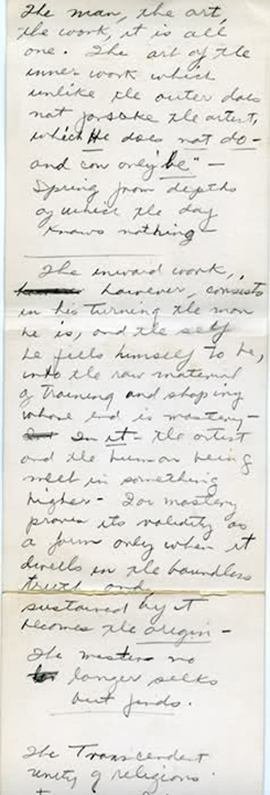 The man, the art,
the work, it is all
one. The art of the
inner work which
unlike the outer does
not forsake the artist,
which He does not do -
and can only "be" -
Spring from depths
of which the day
knows nothing -
The inward work,
however, consists
in his turning the man
he is, and the self
he feels himself to be,
into the raw material
of training and shaping
whose end is mastery -
In it - the artist
and the human being
meet in something
higher - For mastery
proves its validity as
a form only when it
dwells in the boundless
truth and
sustained by it
becomes the origin -
The master no
longer seeks
but finds.
The Transcendent
unity of religions.